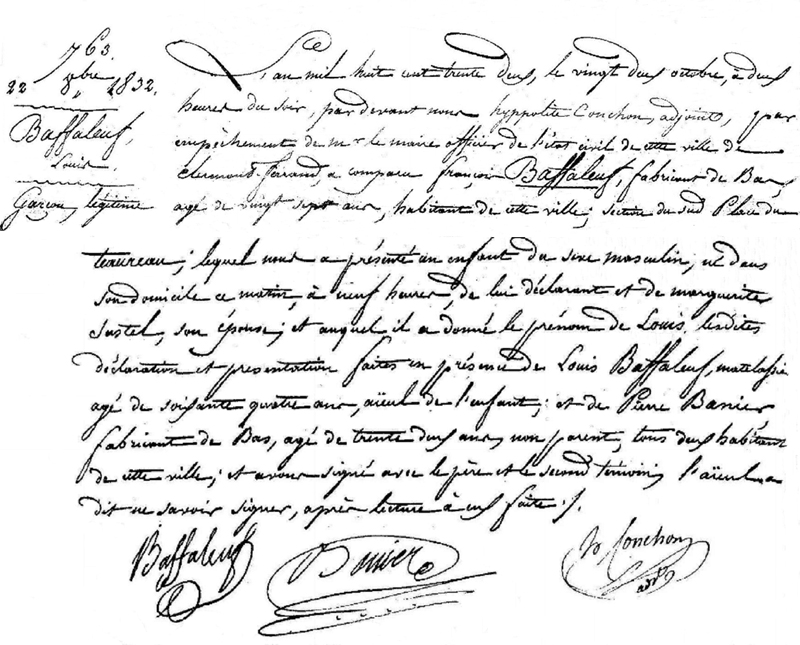 763.
22 8bre 1832.
Baffaleuf,
Louis
Garçon, légitime
L'an mil huit cent trente deux, le vingt deux octobre, à deux
heures du soir, pardevant nous hyppolite Conchon, adjoint, par
empêchement de mr le maire officier de l'état civil de cette ville de
Clermond-ferrand, a comparu françois Baffaleuf, fabricant de Bas,
agé de vingt sept ans, habitant de cette ville; section du sud Place du
teaureau; lequel nous a présenté un enfant du sexe masculin, né dans
son domicile ce matin, à neuf heures, de lui déclarant et de marguerite
sastel, son épouse; et auquel il a donné le prénom de Louis, lesdites
déclaration et présentation faites en présence de Louis Baffaleuf, matelassier
agé de soixante quatre ans, aïeul de l'enfant; et de Pierre Banier
fabricant de Bas, agé de trente deux ans, non parent, tous deux habitant
de cette ville; et avons signé avec le père et le second témoin, l'aïeul a
dit ne savoir signer, après lecture à eux faite ./.
Baffaleuf Banier h Conchon
adjt